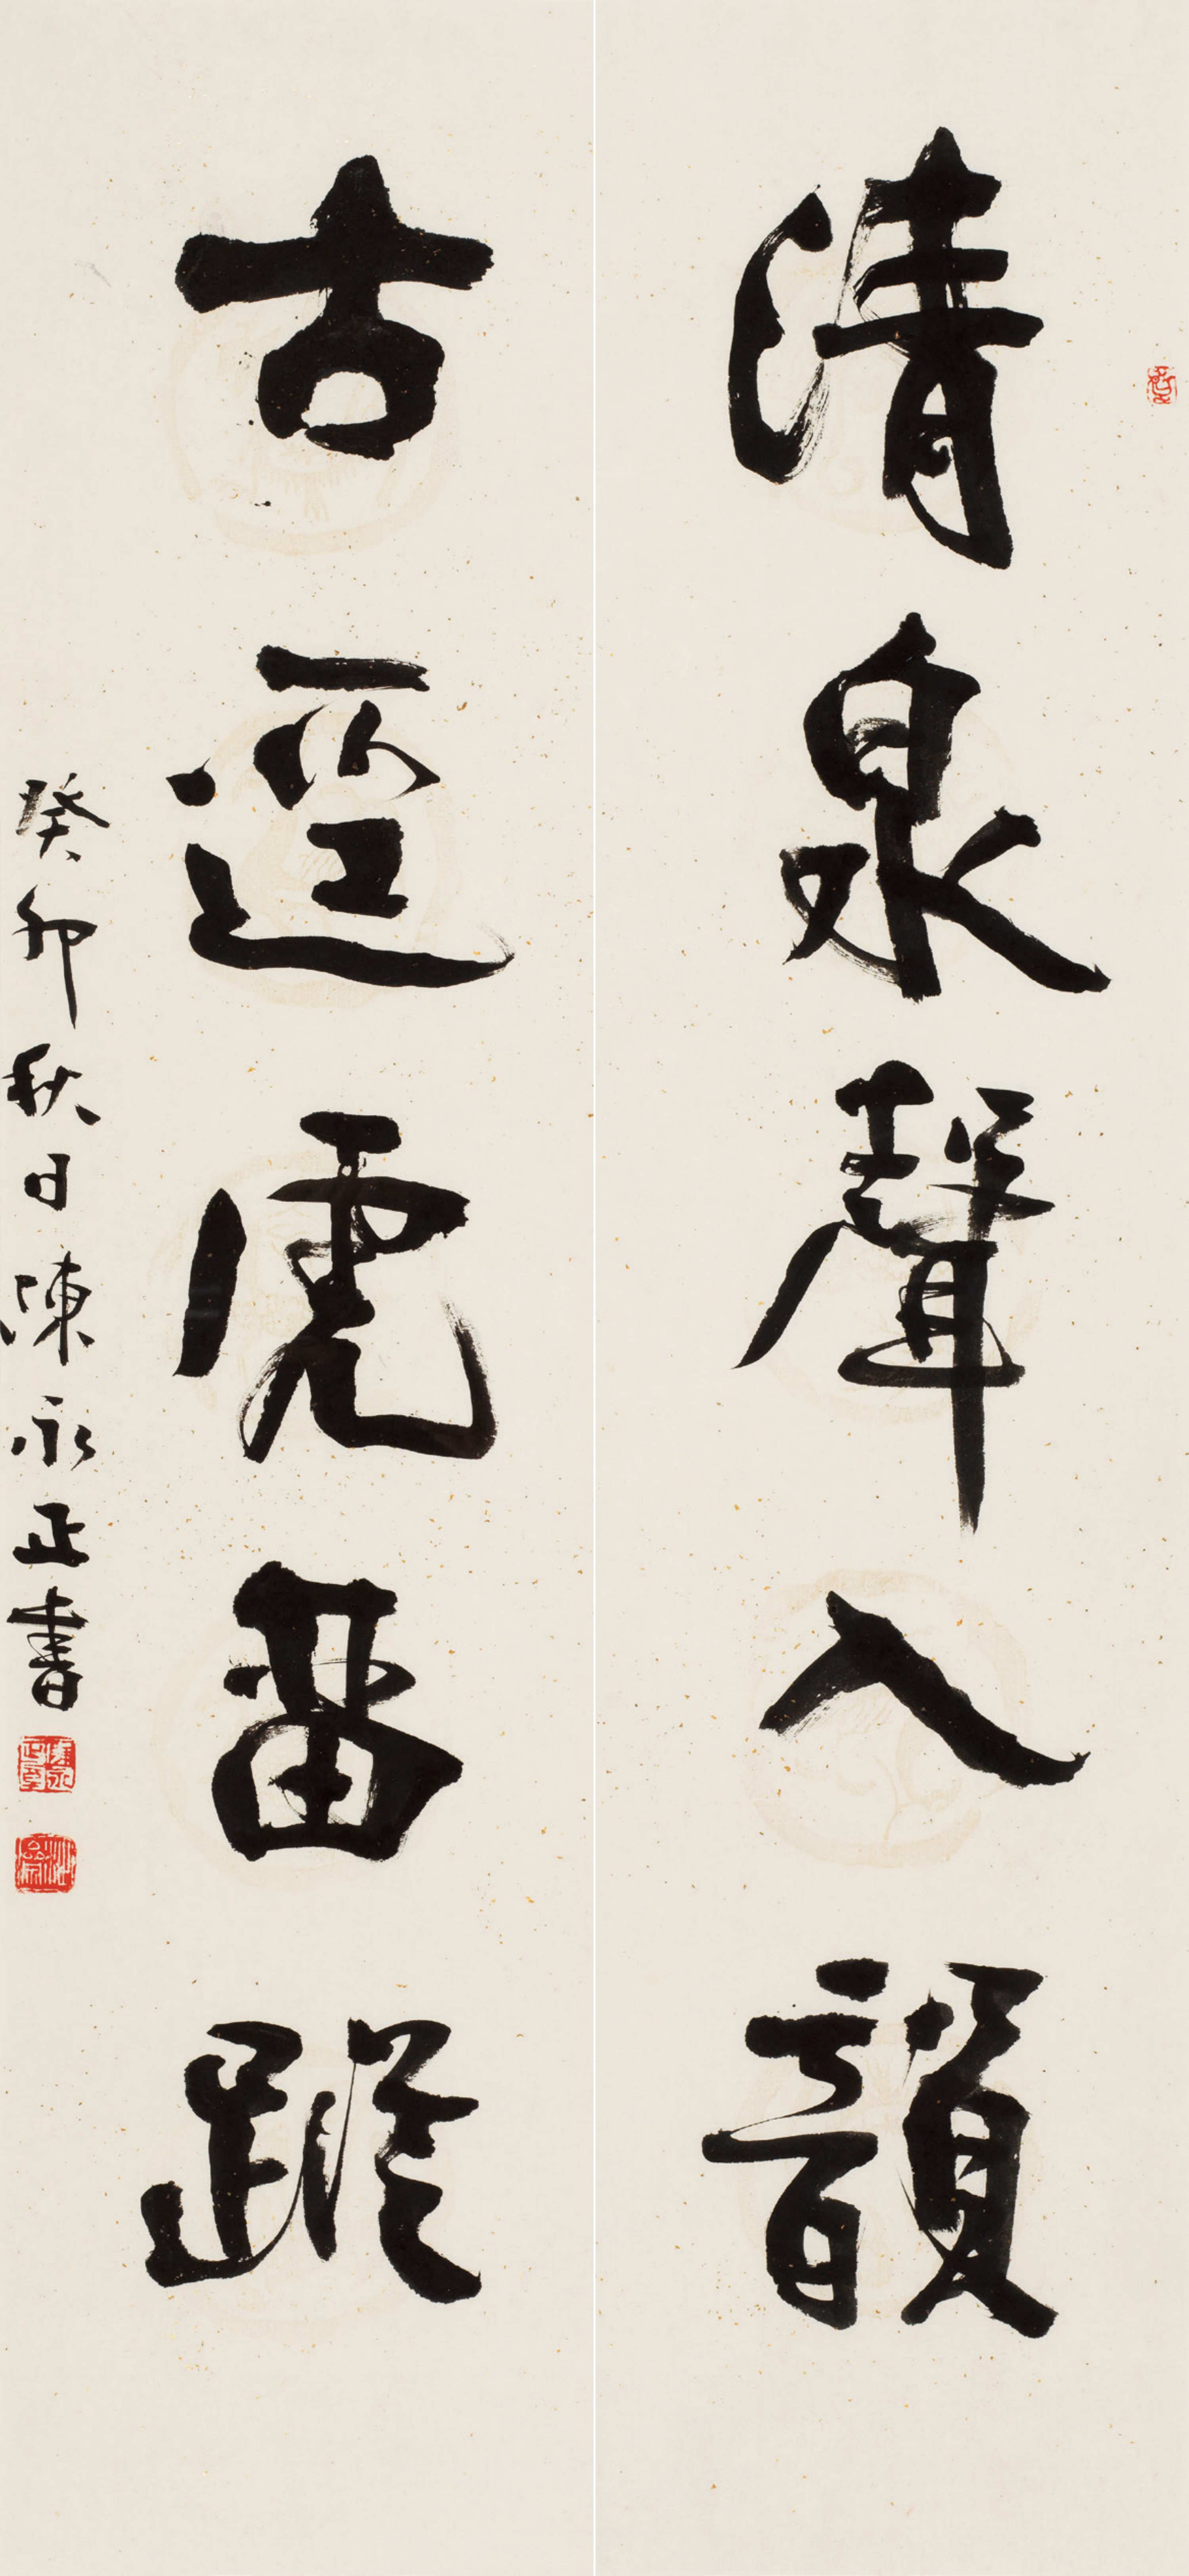 清泉聲入韻
古逕虎畱蹤
癸卯秋日陳永正書